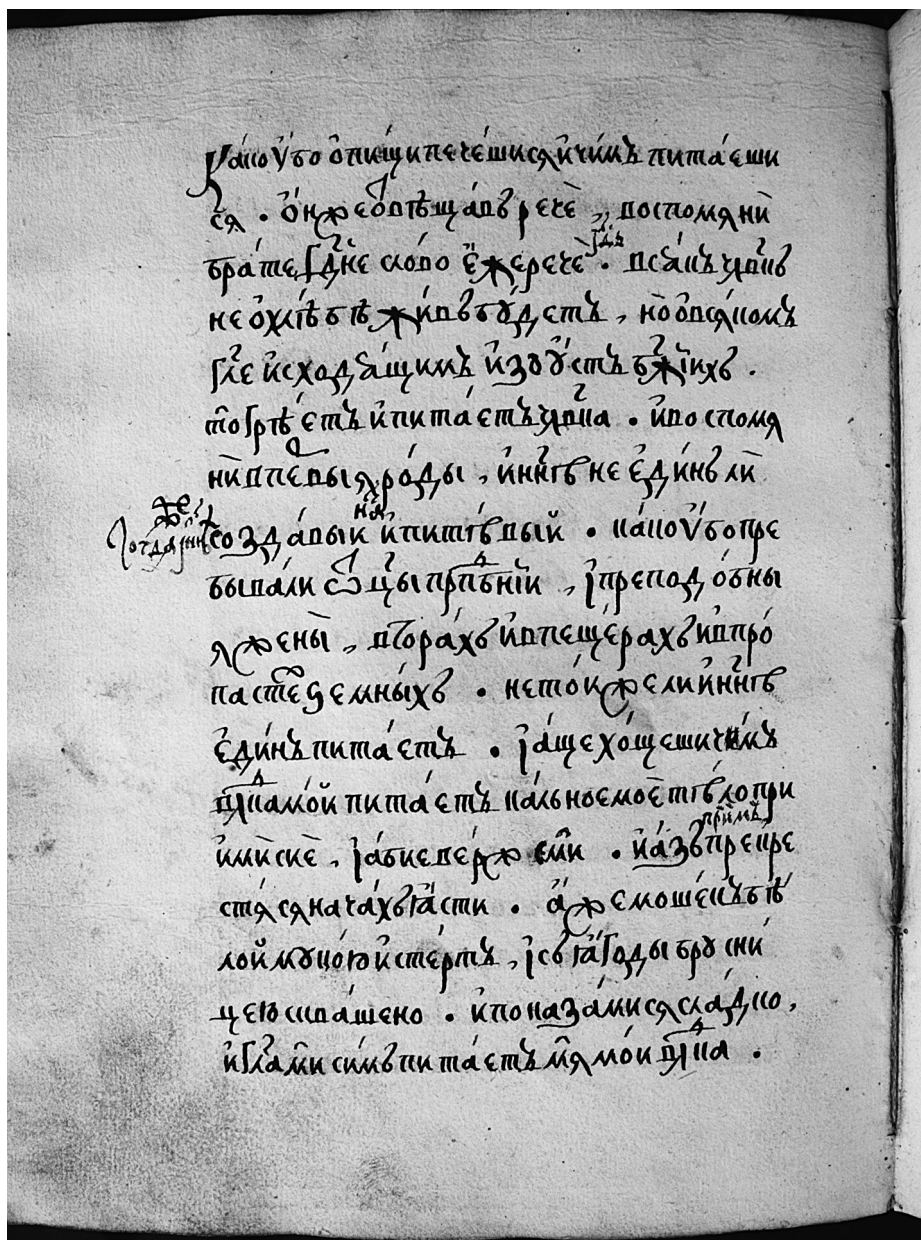 како ᲂу҆́бо ѻ҆ пи́щи пече́шисѧ и҆ чи́мъ пита́еши
сѧ . ѻ҆́нже ѿвѣща́въ речѐ , воспомѧнѝ
бра́те гд҇не сло́во є҆́же речѐ гдь . всѧ́къ чл҃въкъ
не ѻ҆ хлѣ́бѣ жи́въ бу́детъ , но ѻ҆ всѧ́комъ
гл҃е и҆сходѧ́щимъ и҆зо ᲂу҆́стъ бж҃їихъ .
то грѣ́етъ и҆ пита́етъ чл҃вка . и҆ воспомѧ
нѝ в пе́рвыѧ ро́ды , и҆ нн҃ѣ не є҆ди́нъ ли
созда́выи ны́ѧ и҆ пита́вый . ка́ко ᲂу҆́бо пре
быва́ли ѿцы прпⷣбнїи , и҆ преподо́бны
ѧ жены̀ , в гора́хъ и҆ в пеще́рахъ и҆ в про́
пастехъ земны́хъ . не то́кже ли и҆ нн҃ѣ
є҆ди́нъ пита́етъ . и҆ а́ще хо́щеши чи́мъ
влⷣка мо́й пита́етъ ка́льное моѐ тѣ́ло при
и҆мѝ сїѐ , и҆ а́бие ве́рже мѝ . и҆ а́зъ прїимъ пре́кре
стѧ́сѧ нача́хъ ꙗ҆́сти . а҆́же мо́шекъ бѣ́
лой муко́ю и҆сте́ртъ , и҆ съ ꙗ҆́годы брусни́
цею сква́шено . и҆ показа́мисѧ сла́дко ,
и҆ гл҃а мѝ си́мъ пита́етъ мѧ̀ мо́и влⷣка .